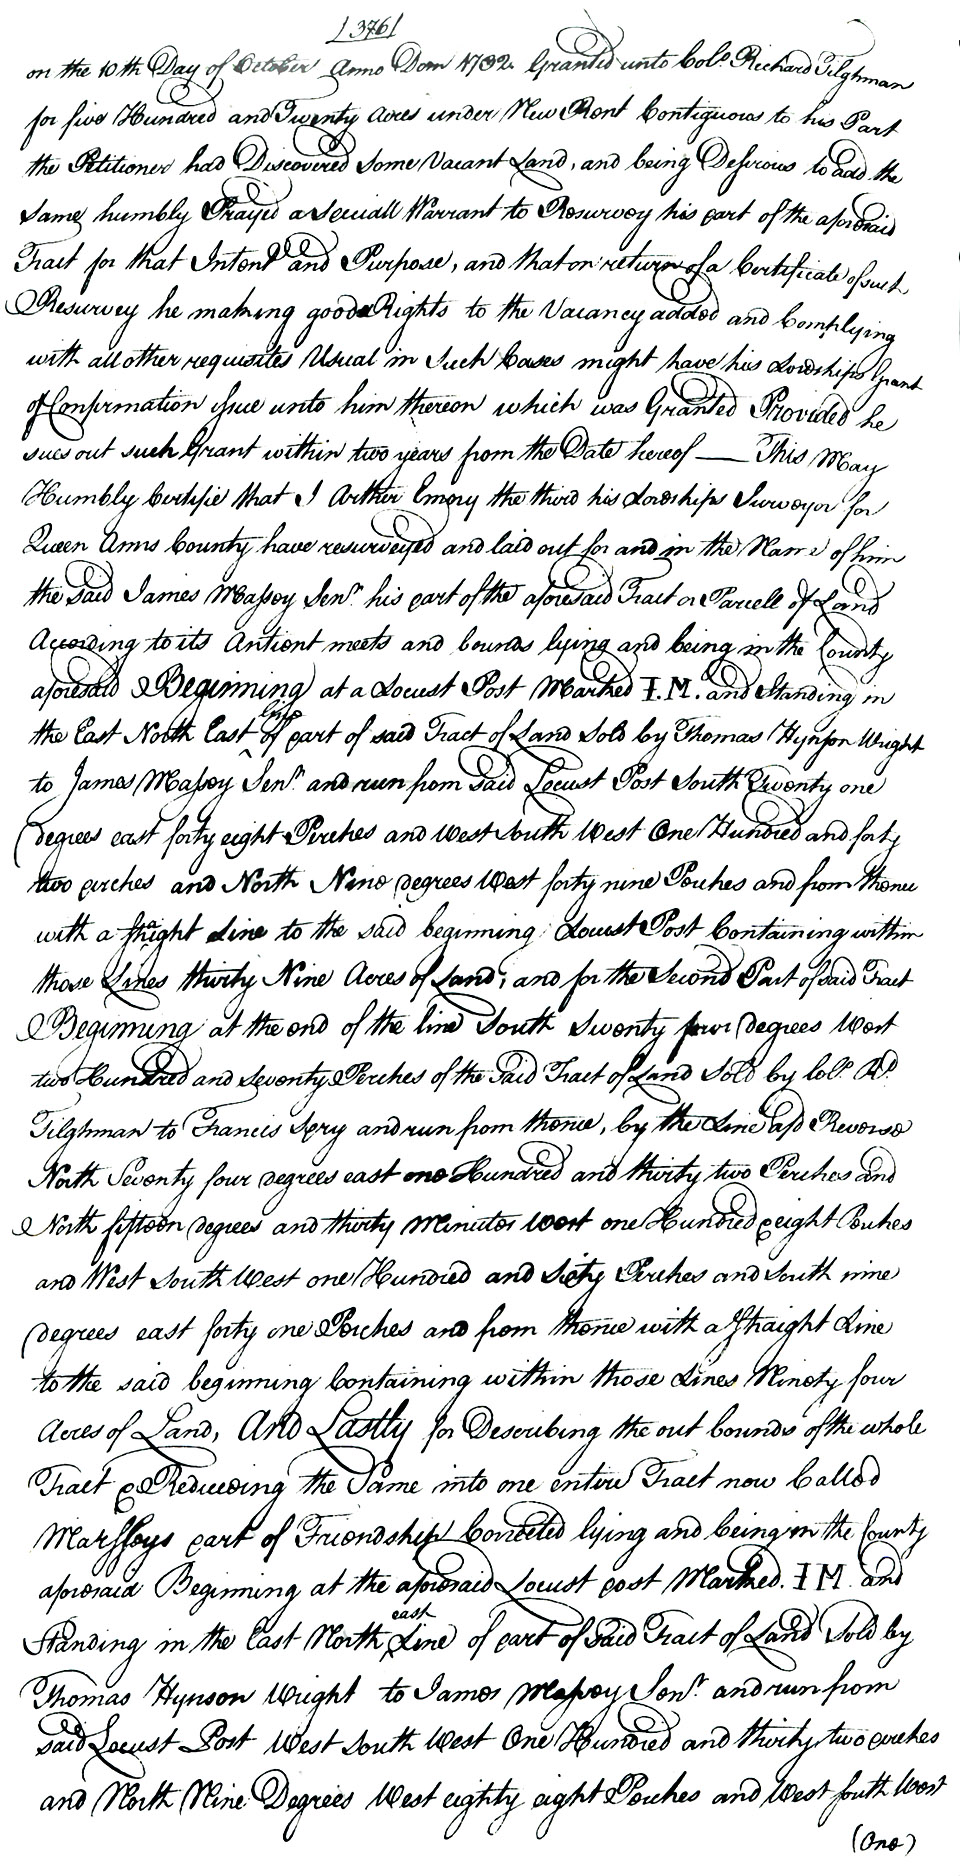 [376]
on the 10th Day of October Anno Dom 1732 Granted unto Col.o Richard Tilghman
for five Hundred and Twenty Acres under New Rent Contiguous to his Part
the Petitioner had Discovered Some Vacant Land, and being Desirous to add the
Same humbly Prayed a Speciall Warrant to Resurvey his part of the aforesaid
Tract for that Intent and Purpose, and that on return of a Certificate of such
Resurvey he making good Rights to the Vacancy added and Complying
with all other requisites Usual in Such Cases might have his Lordships Grant
of Confirmation issue unto him thereon which was Granted Provided he
sues out such Grant within two years from the Date hereof — This May
Humbly Certifie that I Arthur Emory the third his Lordships Surveyor for
Queen Anns County have resurveyed and laid out for and in the Name of him
the said James Massey Senr. his part of the aforesaid Tract or Parcell of Land
According to its Antient meets and bounds lying and being in the County
aforesaid Beginning at a Locust Post Marked I.M. and Standing in
the East North East line of part of said Tract of Land Sold by Thomas Hynson Wright
to James Massey Senr. and run from said Locust Post South Twenty one
degrees east forty eight Perches and West South West One Hundred and forty
two perches and North Nine degrees West forty nine Perches and from thence
with a straight Line to the said beginning Locust Post Containing within
those Lines thirty Nine Acres of Land; and for the Second Part of said Tract
Beginning at the end of the line South Seventy four degrees West
two Hundred and Seventy Perches of the Said Tract of Land Sold by Col.o Rd.
Tilghman to Francis Spry and run from thence, by the Line afd Reverse
North Seventy four degrees east one Hundred and thirty two Perches and
North fifteen degrees and thirty Minutes West one Hundred & eight Perches
and West South West one Hundred and Sixty Perches and South nine
degrees east forty one Perches and from thence with a Straight Line
to the said beginning Containing within those Lines Ninety four
Acres of Land, And Lastly for Describing the out bounds of the whole
Tract & Reduceing the Same into one entire Tract now Called
Marsseys part of Friendship Corrected lying and being in the County
aforesaid Beginning at the aforesaid Locust post Marked I M and
Standing in the East North east Line of part of Said Tract of Land Sold by
Thomas Hynson Wright to James Massey Senr. and run from
said Locust Post West South West One Hundred and thirty two perches
and North Nine Degrees West eighty eight Perches and West south West
(One)